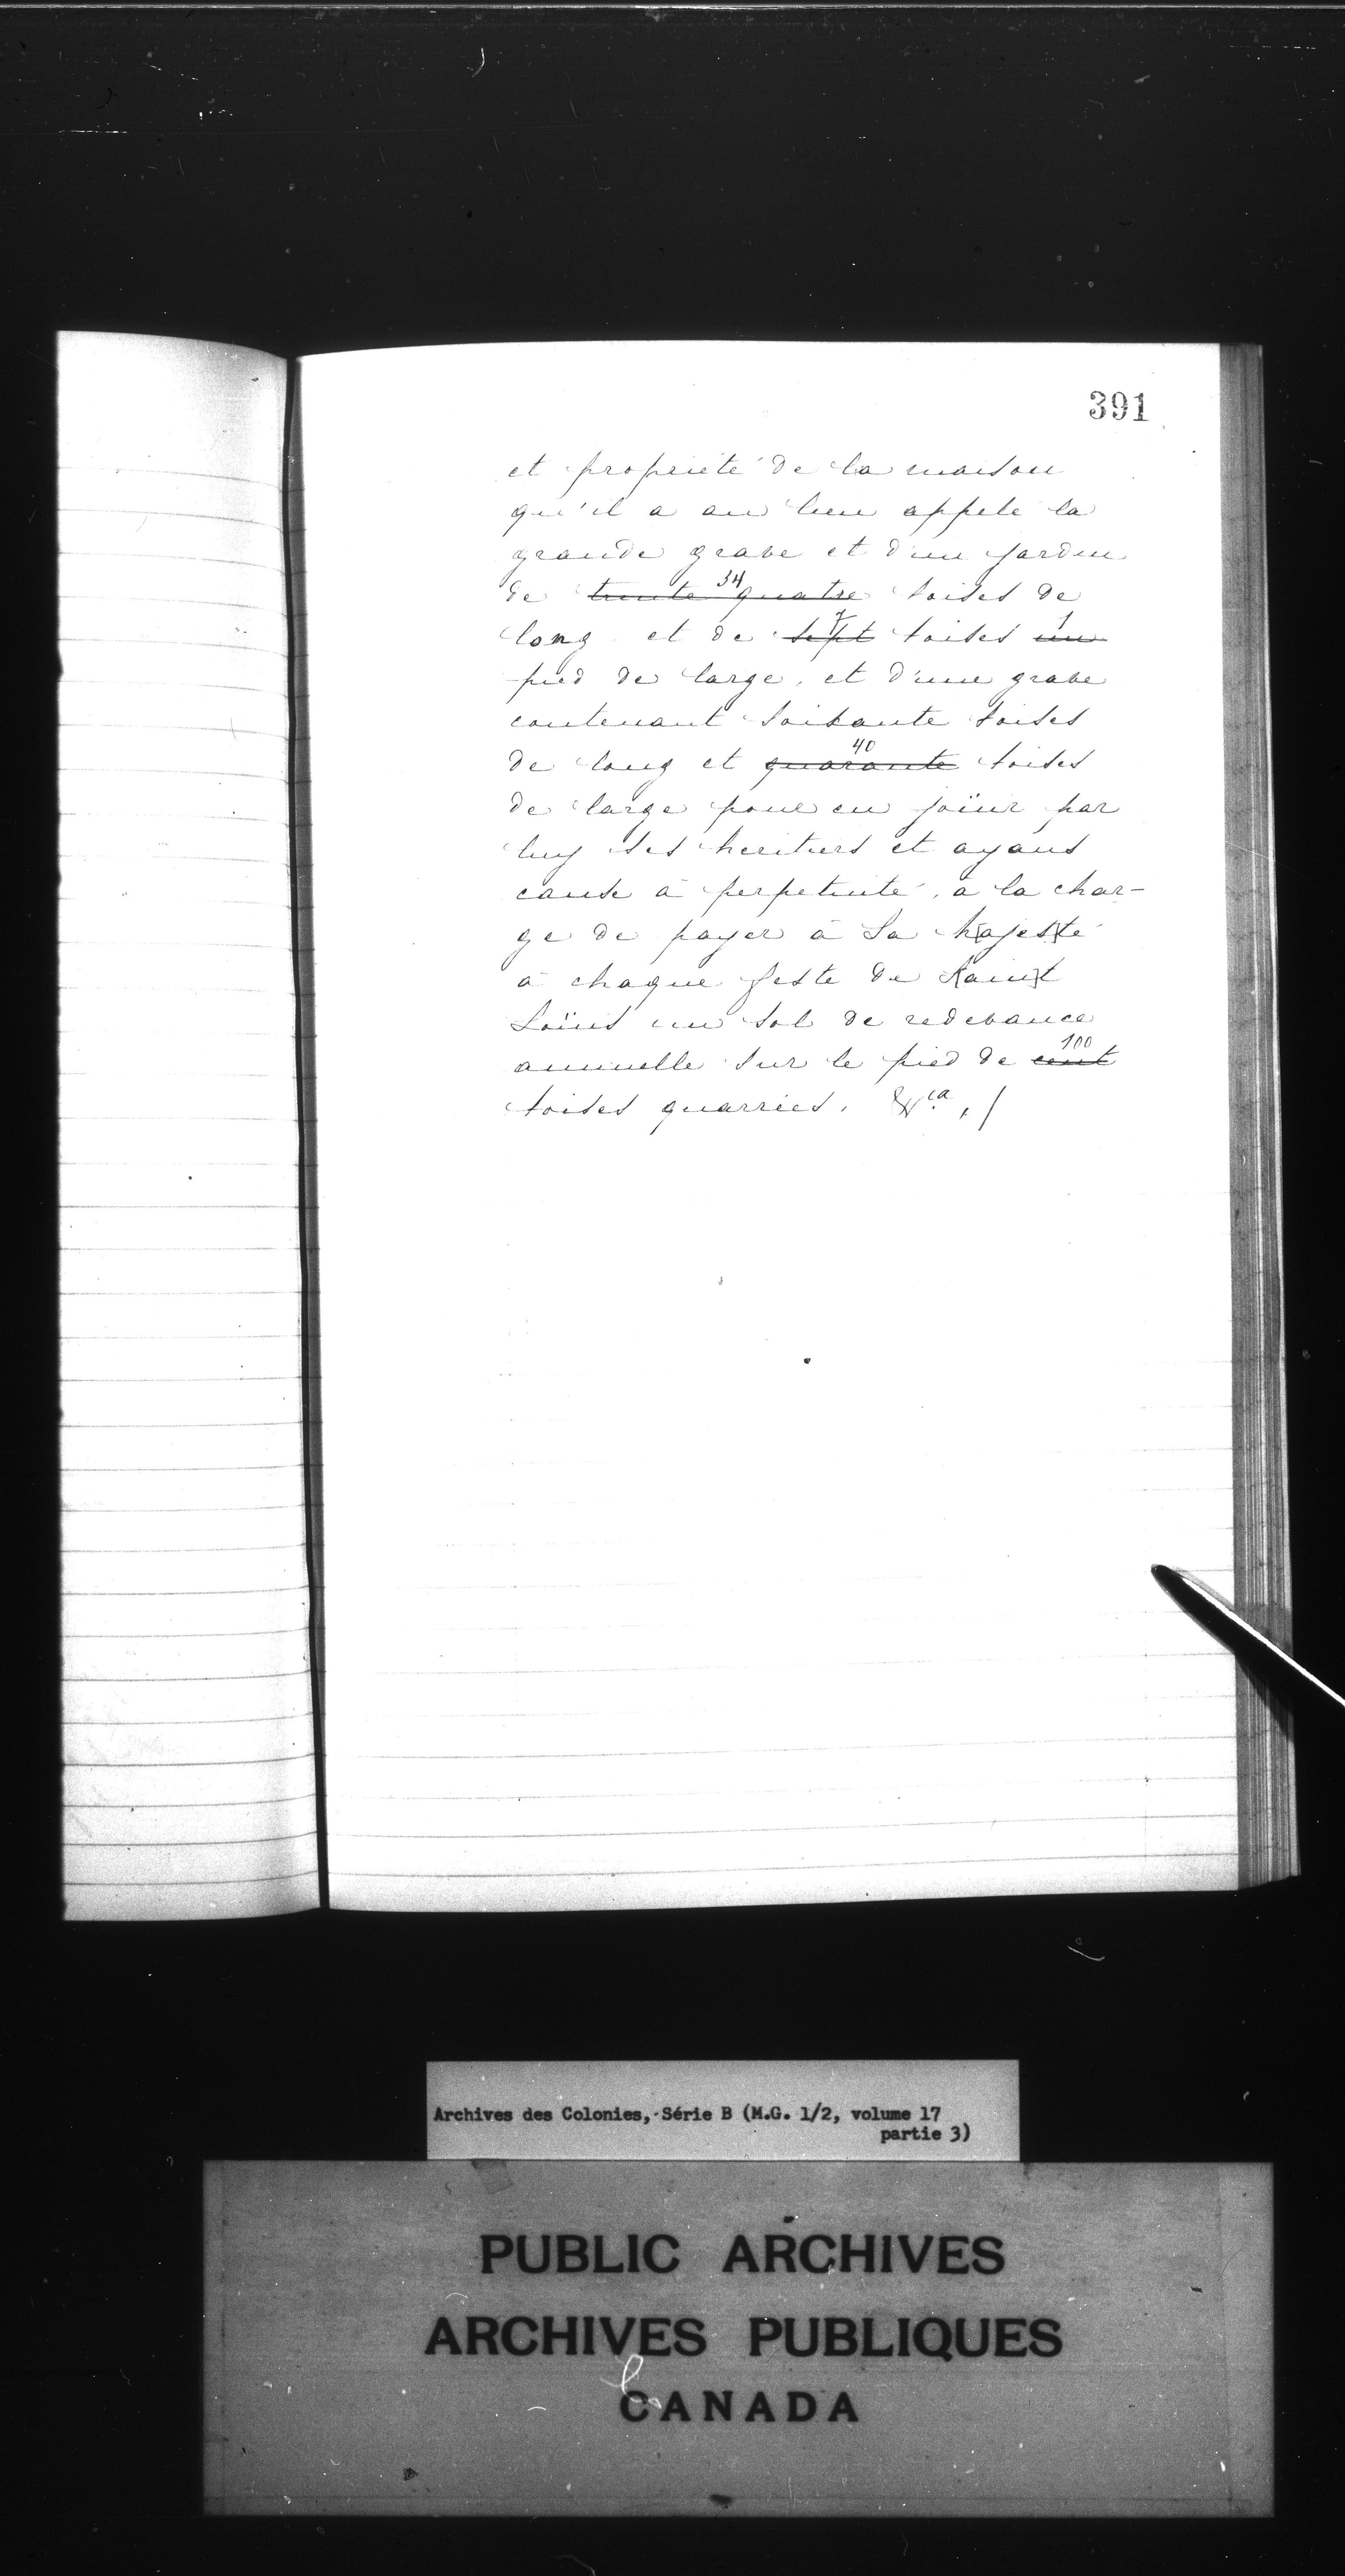 391
et propriété de la maison
qu'il a au lieu appelé la
grande grave et d'un jardin
de trente quatre 34 toises de
long et de sept 7 toises un 1
pied de large, et d'une grave
contenant soixante toises
de long et quarante 40 toises
de large pour en joüir par
luy ses heritiers et ayans
cause à perpetuité, à la char-
ge de payer à Sa M[ajes]té
à chaque feste de S[ain]t
Loüis un sol de redevance
annuelle sur le pied de cent 100
toises quarrées. &ca ./
Archives des Colonies, Série B (M.G. 1/2, volume 17
partie 3)
PUBLIC ARCHIVES
ARCHIVES PUBLIQUES
CANADA